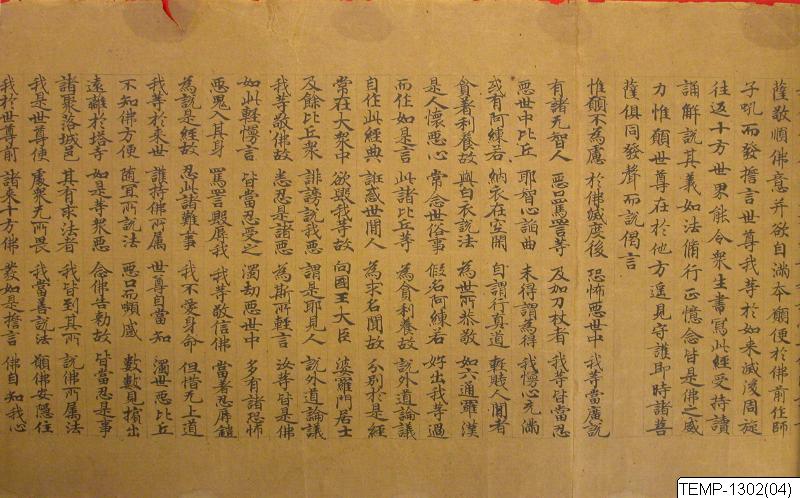 薩敬順佛意并欲自滿本願便於佛前作師
子吼而發擔言世尊我等於如來滅後周旋
往返十方世界能令眾生書寫此經受持讀
誦解說其義如法脩行正憶念皆是佛之威
力惟願世尊在於他方遥見守護即時諸菩
薩俱同發聲而說偈言
惟願不為慮 於佛滅度後 恐怖惡世中 我等當廣說
有諸无智人 惡口罵詈等 及加刀杖者 我等皆當忍
惡世中比丘 耶智心諂曲 未得謂為得 我慢心充滿
或有阿練若 納衣在空閑 自謂行真道 輕賤人間者
貪著利養故 與白衣說法 為世所恭敬 如六通羅漢
是人懷惡心 常念世俗事 假名阿練若 好出我等過
而作如是言 此諸比丘等 為貪利養故 說外道論議
自作此經典 誑惑世間人 為求名聞故 分別於是經
常在大眾中 欲毀我等故 向國王大臣 婆羅門居士
及餘比丘眾 誹謗說我惡 謂是耶見人 說外道論議
我等敬佛故 悉忍是諸惡 為斯所輕言 汝等皆是佛
如此輕慢言 皆當忍受之 濁劫惡世中 多有諸恐怖
惡鬼入其身 罵詈毀辱我 我等敬信佛 當著忍辱鎧
為說是經故 忍此諸難事 我不愛身命 但惜无上道
我等於來世 護持佛所属 世尊自當知 濁世惡比丘
不知佛方便 随宜所說法 惡口而頻蹙 數數見擯出
遠離於塔寺 如是等眾惡 念佛告勅故 皆當忍是事
諸聚落城邑 其有求法者 我皆到其所 說佛所属法
我是世尊使 處眾无所畏 我當善說法 願佛安隱住
我於世尊前 諸来十方佛 發如是擔言 佛自知我心
TEMP-1302(04)